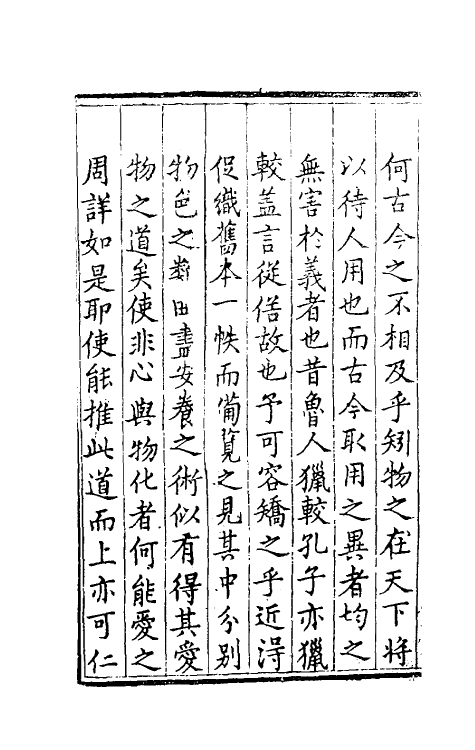 何古今之不相及乎矧物之在天下將
以待人用也而古今取用之異者均之
無害於義者也昔魯人獵較孔子亦獵
較蓋言從俗故也予可容矯之乎近得
促織舊本一帙而備覽之見其中分別
物色之類田盡安養之術似有得其愛
物之道矣使非心與物化者何能愛之
周詳如是耶使能推此道而上亦可仁